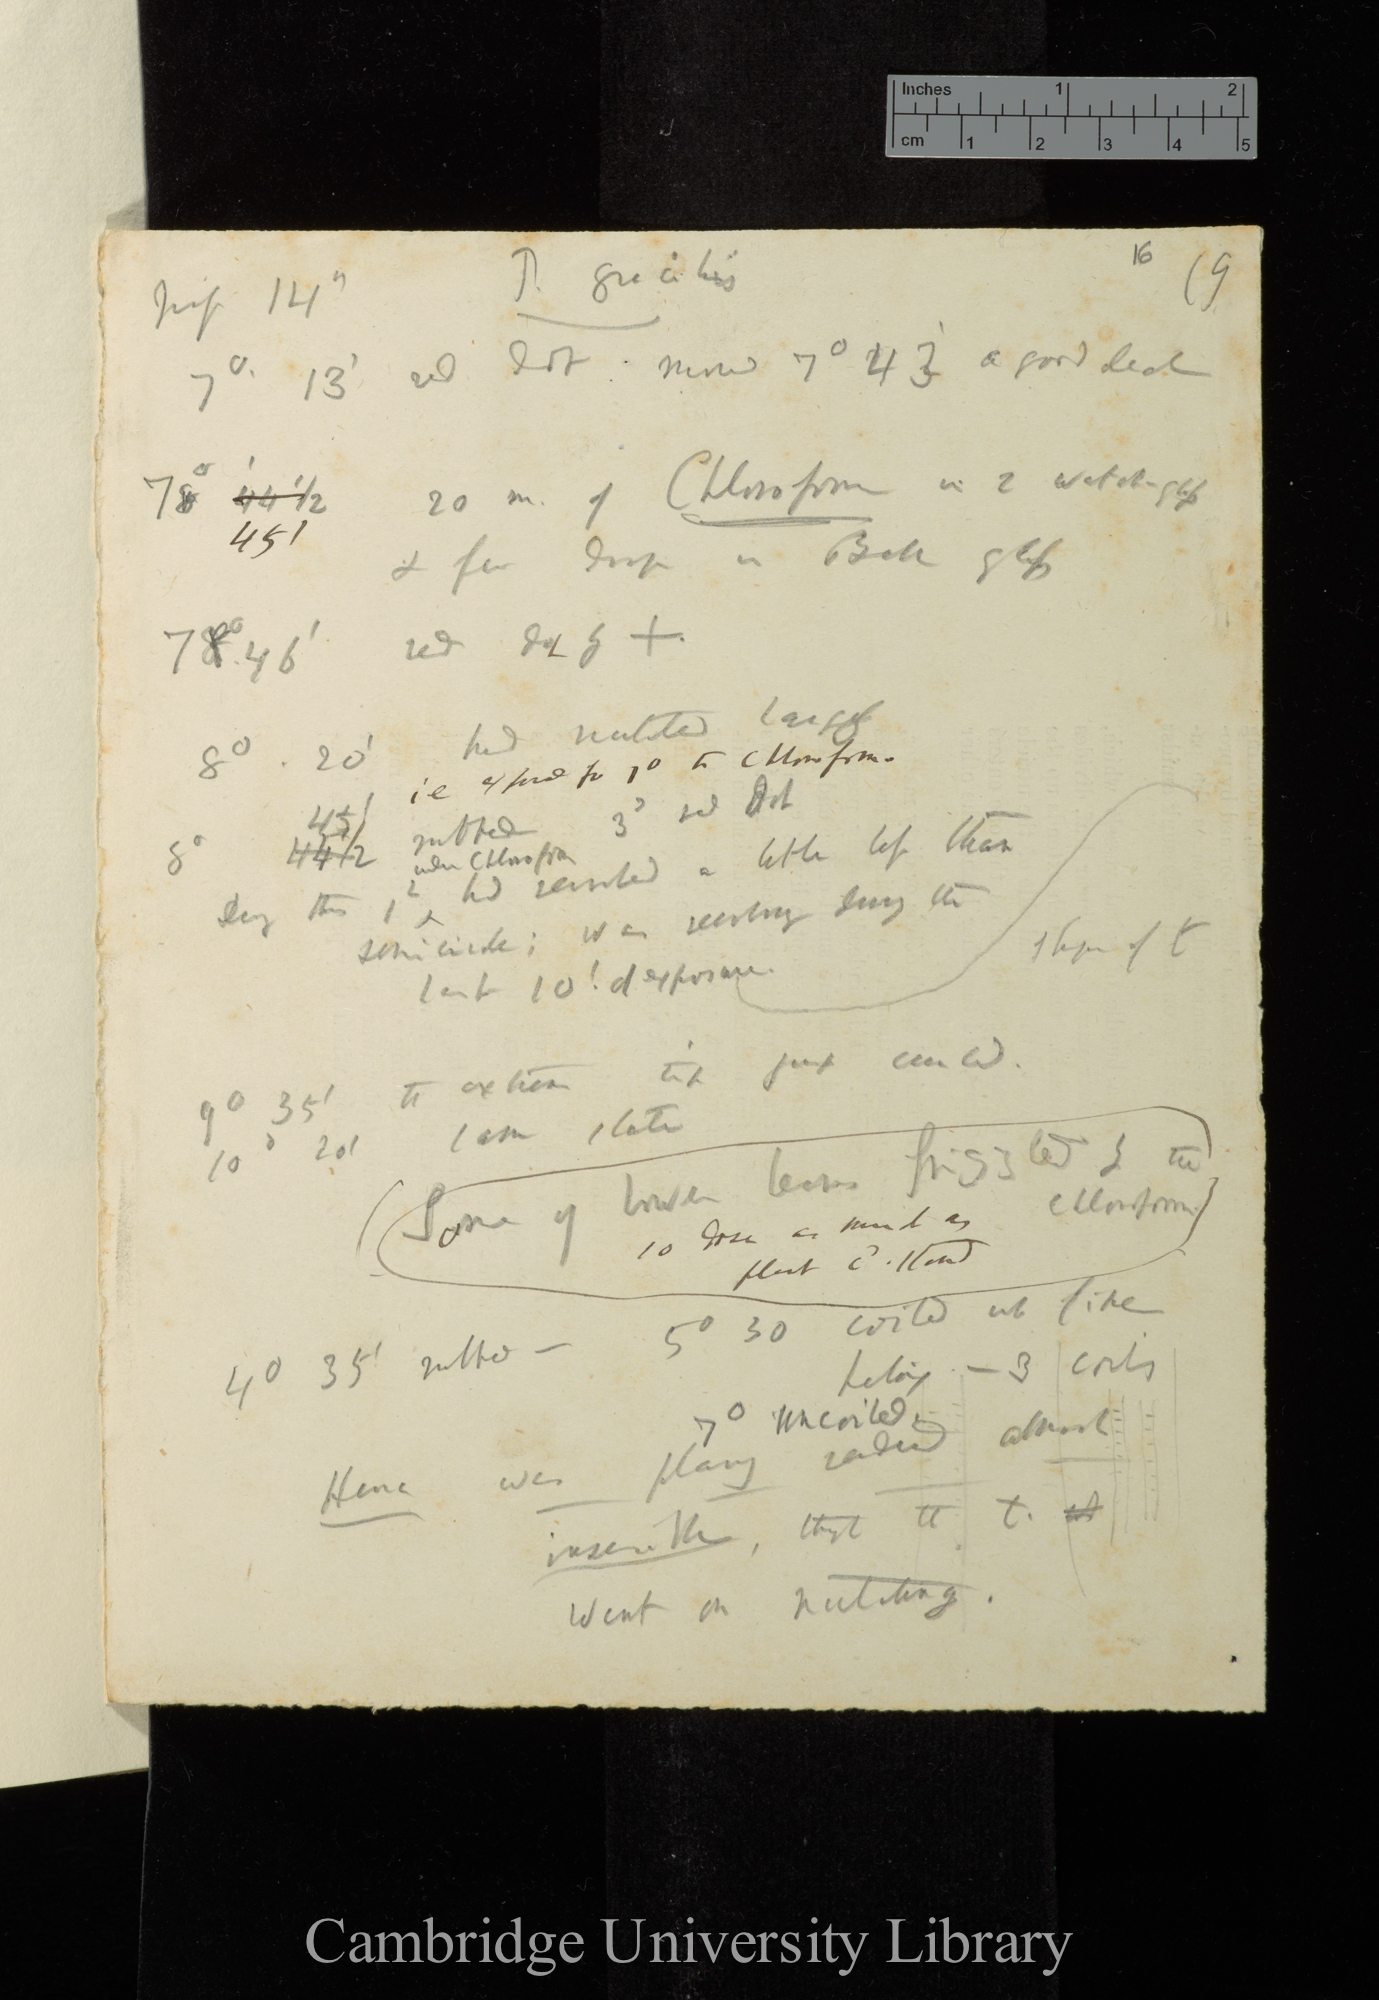 Inches 1 2
cm 1 2 3 4 5
16 (9
14" P. gracilis
7° 13' red dot. moved 7° 43' a good deal
7° 44 1/2 20 m. of Chloroform in 2 watch-glass
45'
& few drops in Bell glass
7° 46' red dot by +.
8° 20' had nutated largely
i.e. exposed for 1° to Chloroform.
45'
8° 44 1/2 rubbed 3° red dot
under Chloroform
During this 1° had revolved a little less than
semicircle; was revolving during the
last 10' of exposure.
shape of t
9° 35' the extreme tip just curled.
10° 20' same state
(Some of lower leaves frizzled by the
Chloroform)
10 dose as much as
plant c^d. stand
4° 35' rubbed — 5° 30 coiled up like
helix — 3 coils
7° uncoiled.
Hence was plainly rendered almost
insensible, though the t.
went on nutating.
Cambridge University Library